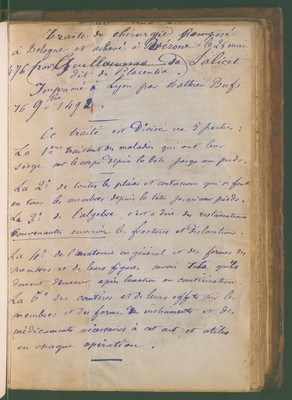 Traité de chirurgie composé
à Bologne et achevé à Vérone le 25 mai
1476 par Guillaumme de Salicet
dit de Placentia.
Imprimé à Lyon par Mathieu Husz
16 9bre 1492.
Ce traité est Divisé en 5 parties:
La 1ère traitant des maladies qui ont leur
siège sur le corps depuis la tête jusqu'aux pieds.
La 2e de toutes les plaies et contusions qui se font
en tous les membres depuis la tête jusqu'aux pieds.
La 3e de l'algèbre c'est à dire des restaurations
convenantes environ les fractures et Dislocations.
La 4e de l'anatomie en général et des formes des
membres et de leurs figures
doivent demeurer après luxation ou cautérisation.
La 5e des cautères et de leurs effets sur les
membres et des formes des instruments et des
médicaments nécessaires à cet art et utiles
en chaque opération.